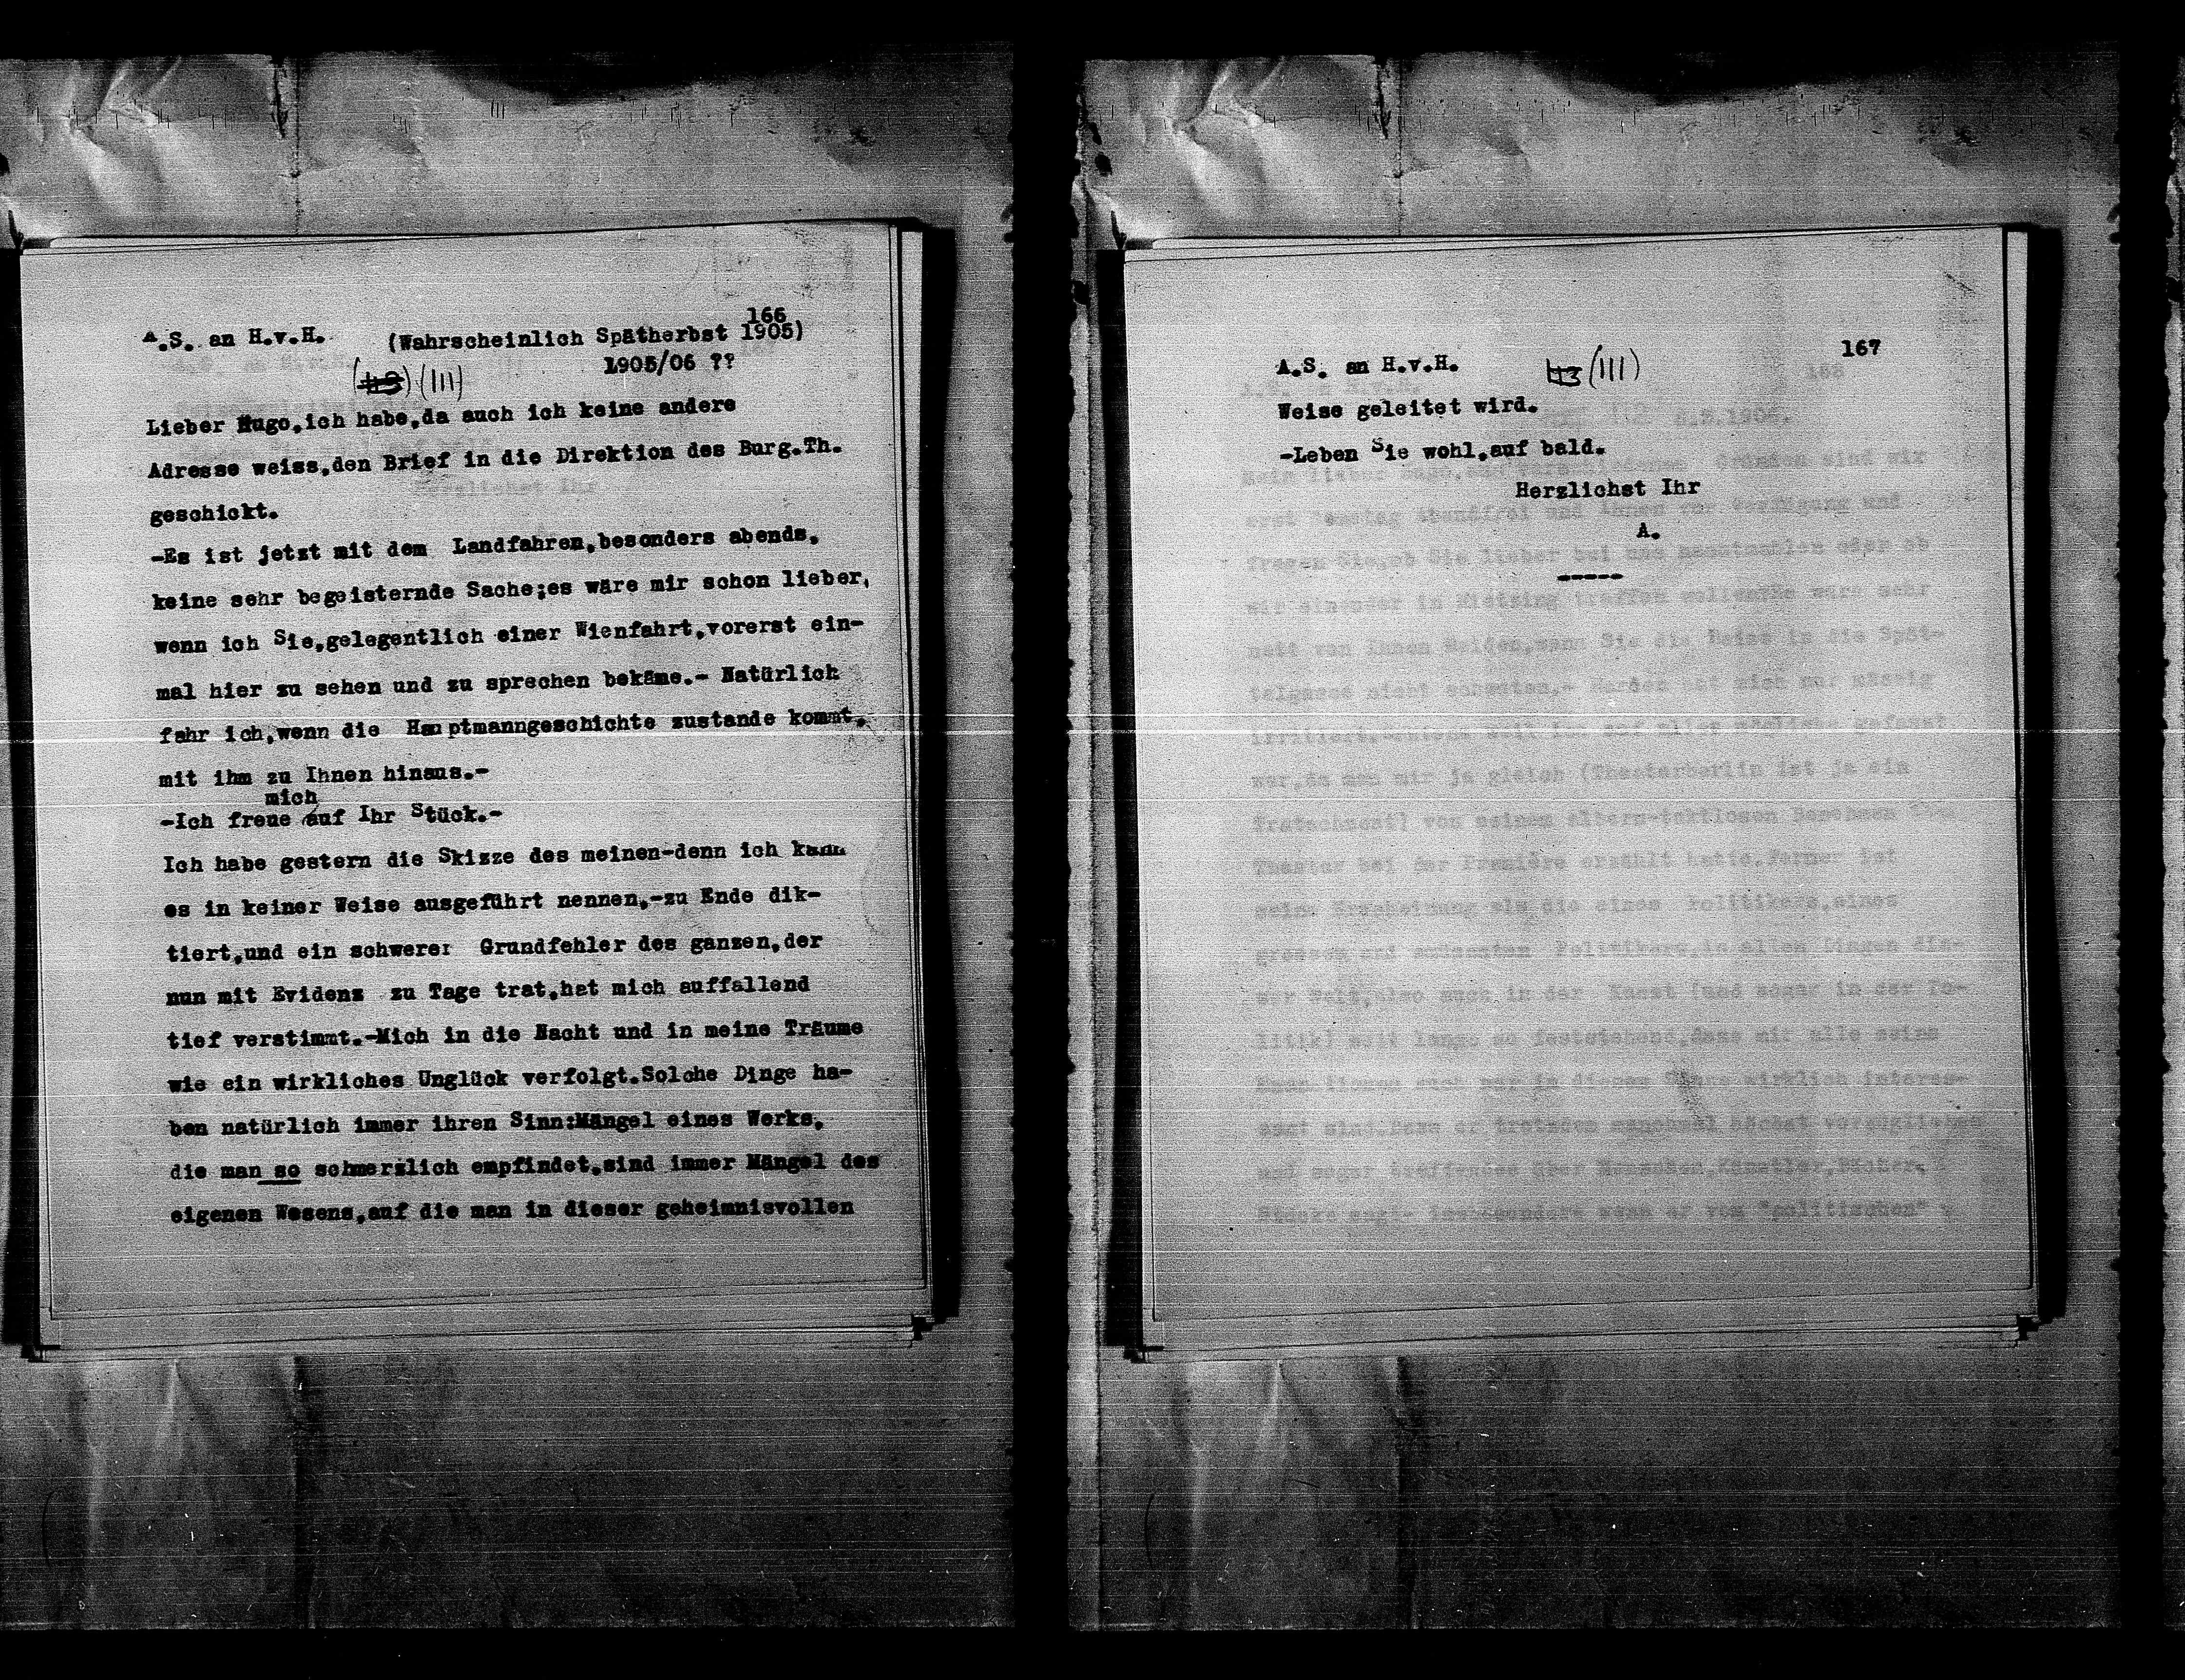 166
A.S. an H.v.H. (Wahrscheinlich Spätherbst 1905)
1905/06 ??
(113) (111)
Lieber Hugo,ich habe,da auch ich keine andere
Adresse weiss,den Brief in die Direktion des Burg.Th.
geschickt.
-Es ist jetzt mit dem Landfahren,besonders abends,
keine sehr begeisternde Sache;es wäre mir schon lieber,
wenn ich Sie,gelegentlich einer Wienfahrt,vorerst ein-
mal hier zu sehen und zu sprechen bekäme.- Natürlich
fahr ich,wenn die Hauptmanngeschichte zustande kommt,
mit ihm zu Ihnen hinaus.-
mich
-Ich freue auf Ihr Stück.-
Ich habe gestern die Skizze des meinen-denn ich kann
es in keiner Weise ausgeführt nennen,-zu Ende dik-
tiert,und ein schwerer Grundfehler des ganzen,der
nun mit Evidenz zu Tage trat,hat mich auffallend
tief verstimmt.-Mich in die Nacht und in meine Träume
wie ein wirkliches Unglück verfolgt.Solche Dinge ha-
ben natürlich immer ihren Sinn:Mängel eines Werks,
die man so schmerzlich empfindet,sind immer Mängel des
eigenen Wesens,auf die man in dieser geheimnisvollen
167
A.S. an H.v.H. 113 (111)
Weise geleitet wird.
-Leben Sie wohl,auf bald.
Herzlichst Ihr
A.
-----